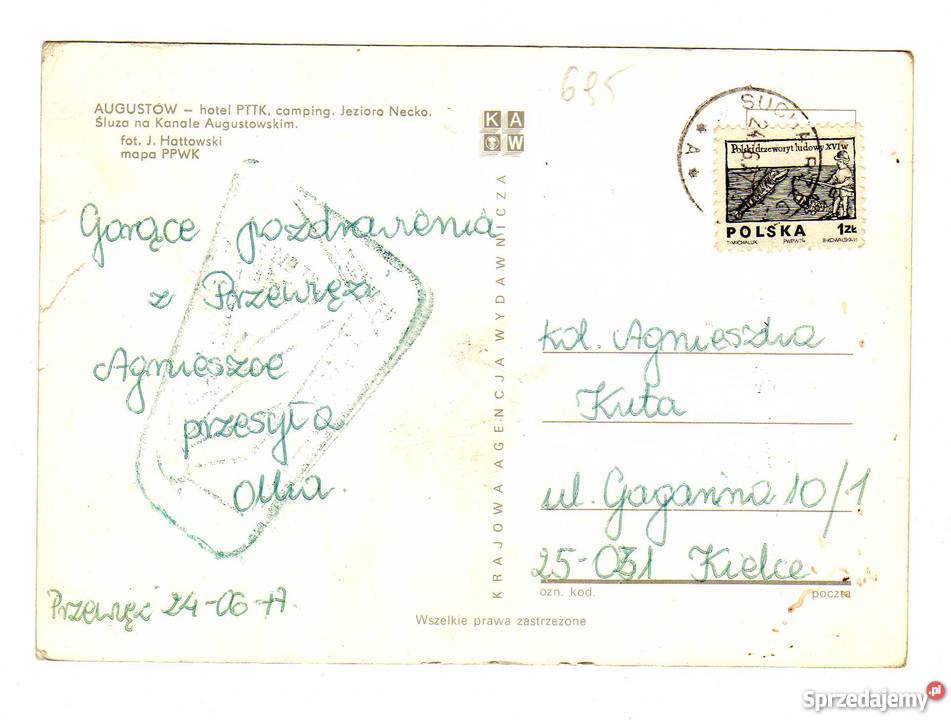 695
AUGUSTÓW – hotel PTTK, camping. Jezioro Necko.
Śluza na Kanale Augustowskim.
fot. J. Hattowski
mapa PPWK
KAW
KRAJOWA AGENCJA WYDAWNICZA
Gorące pozdrowienia
z Przewięzi
Agnieszce
przesyła
Olka.
Przewięź 24-06-77.
Wszelkie prawa zastrzeżone
* A *
Polski drzeworyt ludowy XVI w
POLSKA 1ZŁ
T.MICHALUK PWPW 74
kol. Agnieszka
Kuta
ul. Gagarina 10/1
25-031 Kielce
ozn. kod. poczta
Sprzedajemy.pl